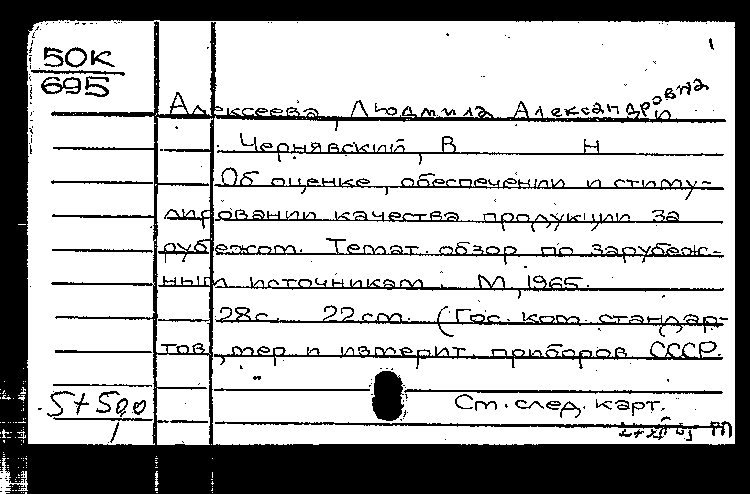 1
50К
695
Алексеева, Людмила Александровна и
Чернявский, В Н
Об оценке, обеспечении и стиму-
лировании качества продукции за
рубежом. Темат. обзор по зарубеж-
ным источникам. М, 1965.
28с. 22см. (Гос. ком. стандар-
тов, мер и измерит. приборов СССР.
5+500
См. след. карт.